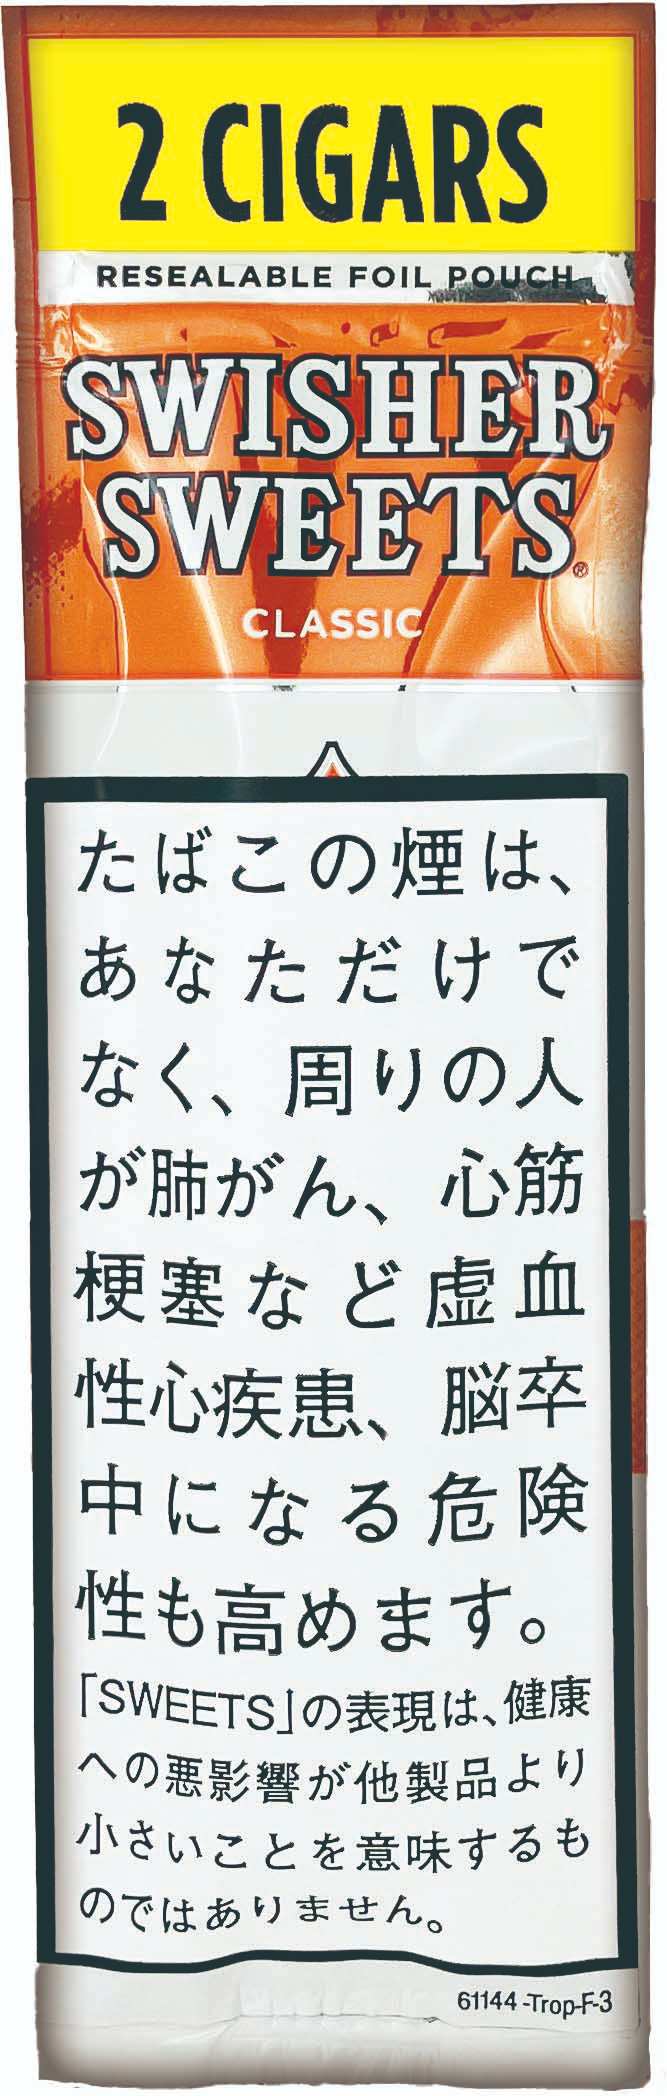 2 CIGARS
RESEALABLE FOIL POUCH
SWISHER
SWEETS®
CLASSIC
たばこの煙は、
あなただけで
なく、周りの人
が肺がん、心筋
梗塞など虚血
性心疾患、脳卒
中になる危険
性も高めます。
「SWEETS」の表現は、健康
への悪影響が他製品より
小さいことを意味するも
のではありません。
61144-Trop-F-3